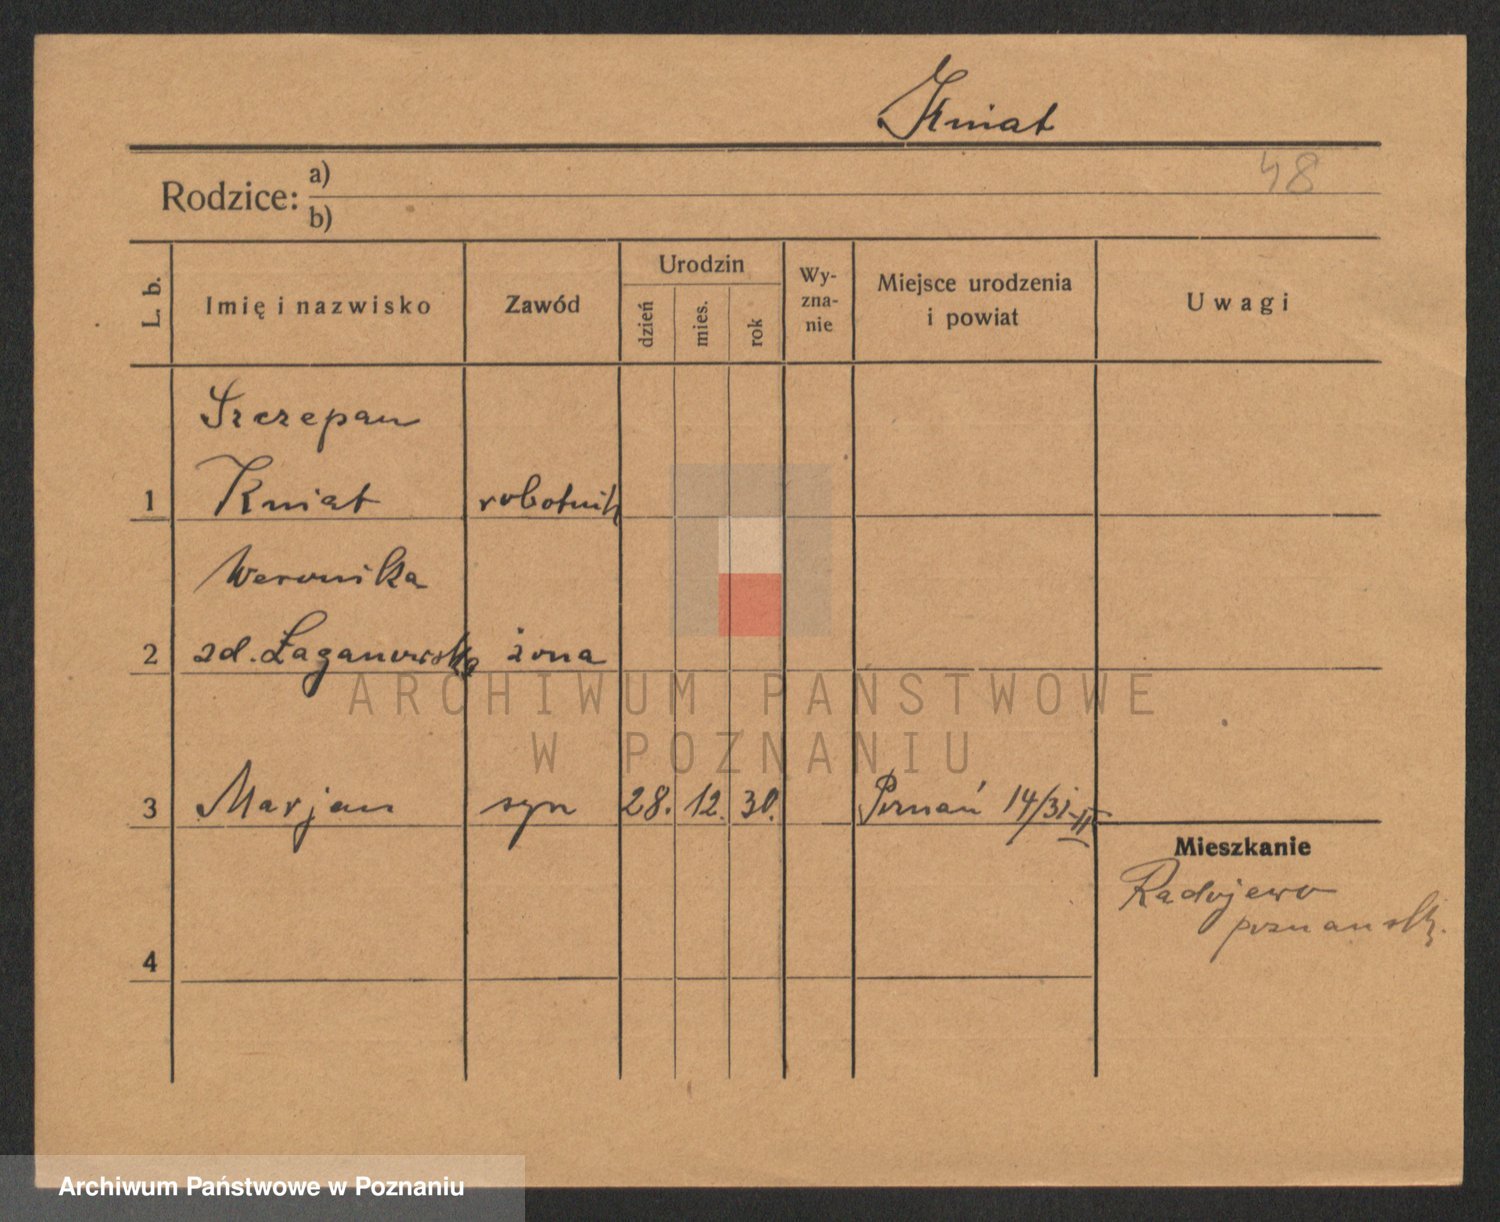 Kniat
48
Rodzice: a)
b)
L. b.
Imię i nazwisko
Zawód
Urodzin
dzień
mies.
rok
Wy-
zna-
nie
Miejsce urodzenia
i powiat
Uwagi
Szczepan
1 Kniat robotnik
Weronika
2 zd. Łaganowska żona
ARCHIWUM PAŃSTWOWE
W POZNANIU
3 Marjan syn 28. 12. 30. Poznań 14/31-II
Mieszkanie
Radojewo
poznańsk.
4
Archiwum Państwowe w Poznaniu